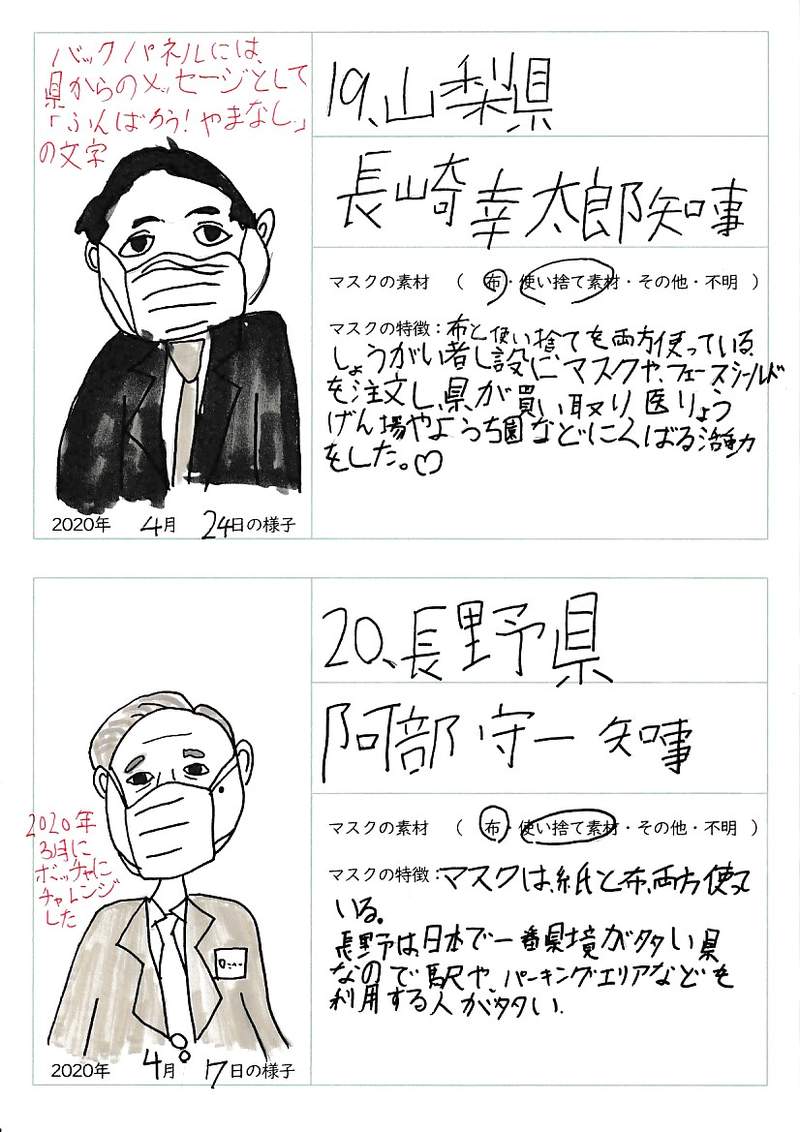 バックパネルには、
県からのメッセージとして
「ふんばろう！やまなし」
の文字
2020年 4月 24日の様子
19、山梨県
長崎幸太郎知事
マスクの素材 （ 布・使い捨て素材・その他・不明 ）
マスクの特徴：布と使い捨てを両方使っている。
しょうがい者し設に、マスクや、フェースシールド
を注文し、県が買い取り 医りょう
げん場やようち園などにくばる活動
をした。♡
2020年
3月に
ボッチャに
チャレンジ
した
2020年 4月 17日の様子
20、長野県
阿部守一 知事
マスクの素材 （ 布・使い捨て素材・その他・不明 ）
マスクの特徴：マスクは、紙と布、両方使って
いる。
長野は、日本で一番県境が多い県
なので駅や、パーキングエリアなどを
利用する人が多い。